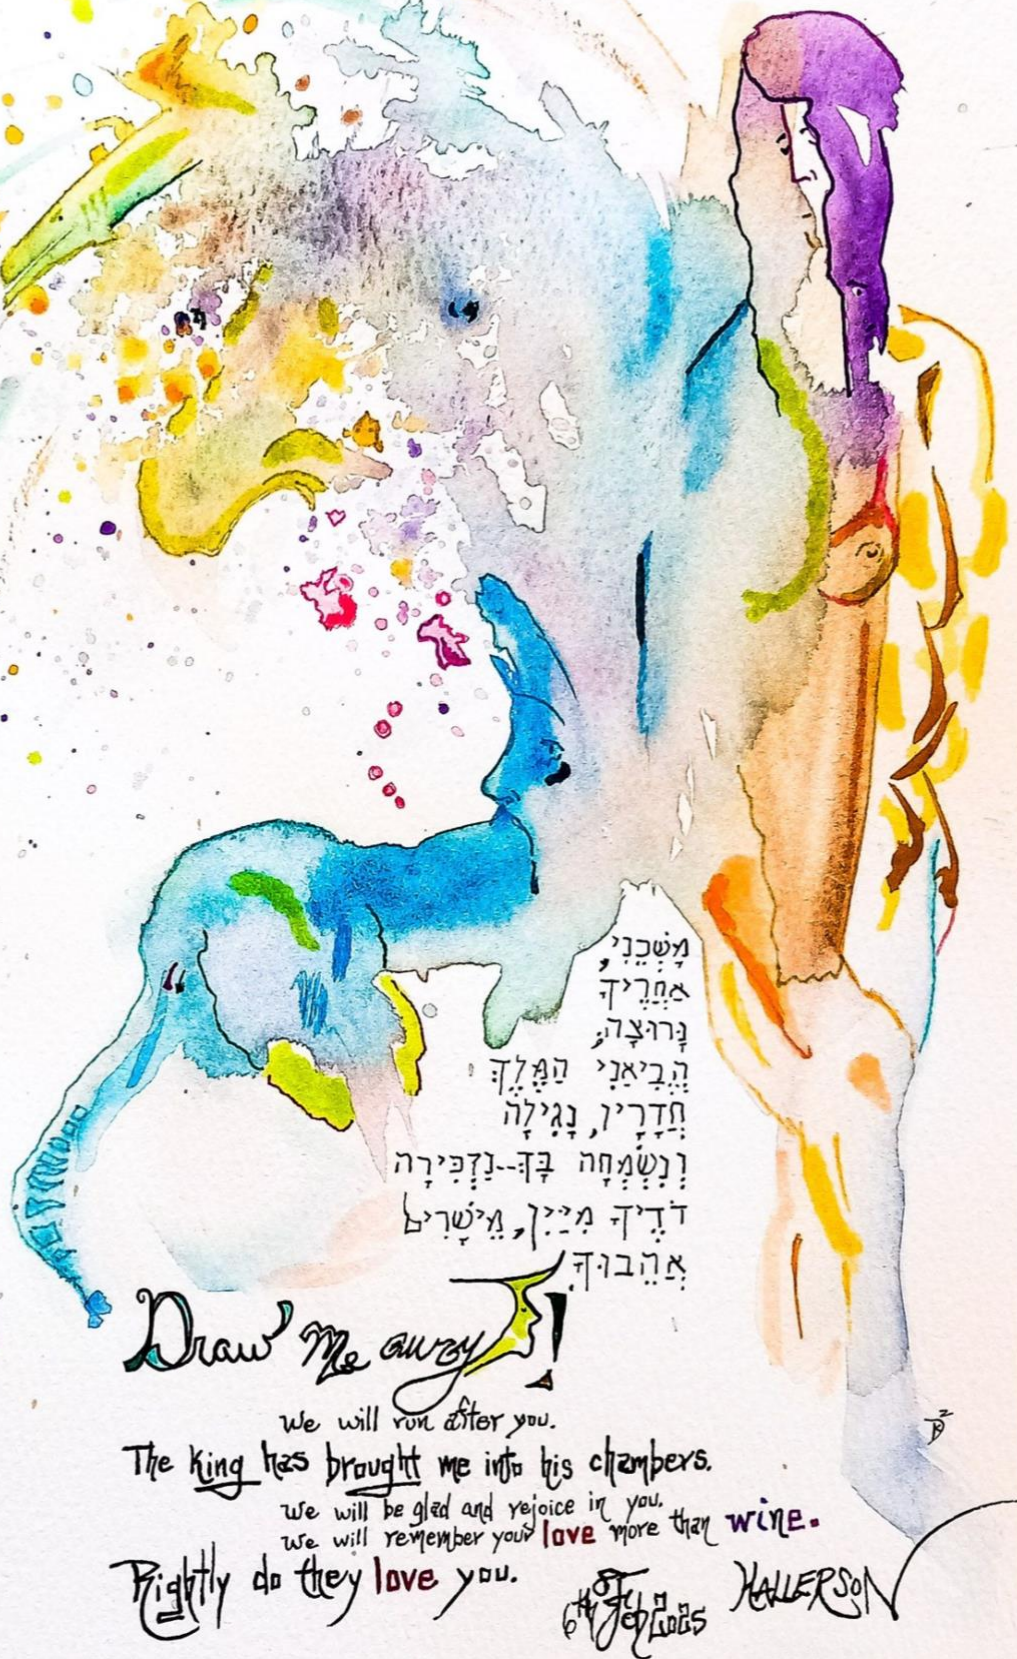 מָשְׁכֵנִי,
אַחֲרֶיךָ
נָּרוּצָה;
הֱבִיאַנִי הַמֶּלֶךְ
חֲדָרָיו, נָגִילָה
וְנִשְׂמְחָה בָּךְ--נַזְכִּירָה
דֹדֶיךָ מִיַּיִן, מֵישָׁרִים
אֲהֵבוּךָ.
Draw Me away!
We will run after you.
The King has brought me into his chambers.
We will be glad and rejoice in you.
We will remember your love more than wine.
Rightly do they love you.
6th of Feb 2025
HALLERSON